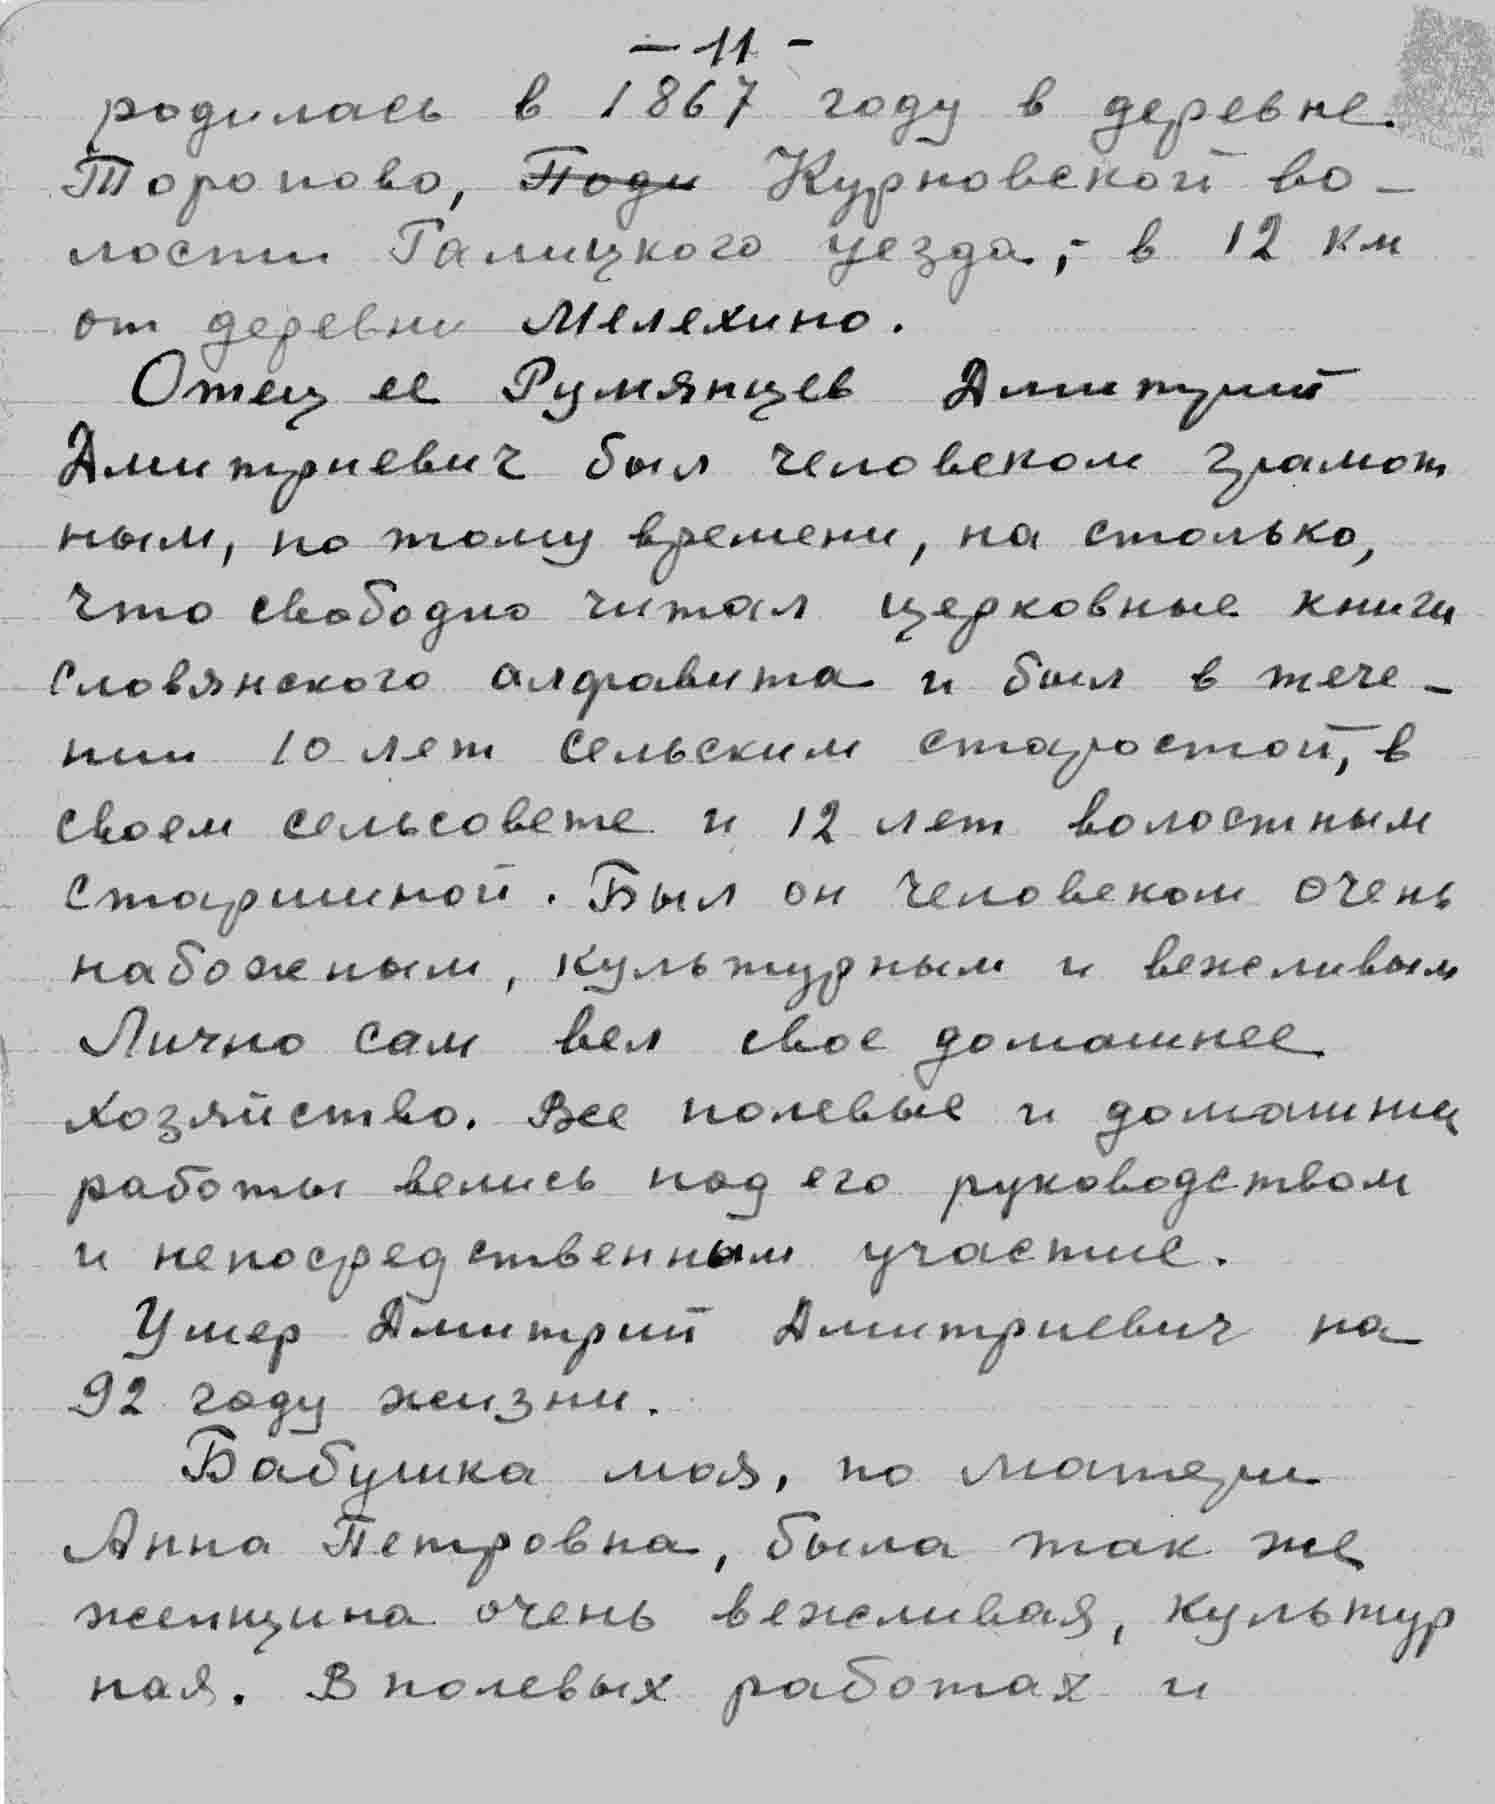 - 11 -
родилась в 1867 году в деревне
Торопово, Поди Курновской во-
лости Галицкого уезда, - в 12 км
от деревни Мелехино.
Отец ее Румянцев Дмитрий
Дмитриевич был человеком грамот
ным, по тому времени, на столько,
что свободно читал церковные книги
словянского алфавита и был в тече-
нии 10 лет сельским старостой, в
своем сельсовете и 12 лет волостным
старшиной. Был он человеком очень
набожным, культурным и вежливым
Лично сам вел свое домашнее
хозяйство. Все полевые и домашние
работы велись под его руководством
и непосредственным участие.
Умер Дмитрий Дмитриевич на
92 году жизни.
Бабушка моя, по матери
Анна Петровна, была так же
женщина очень вежливая, культур
ная. В полевых работах и